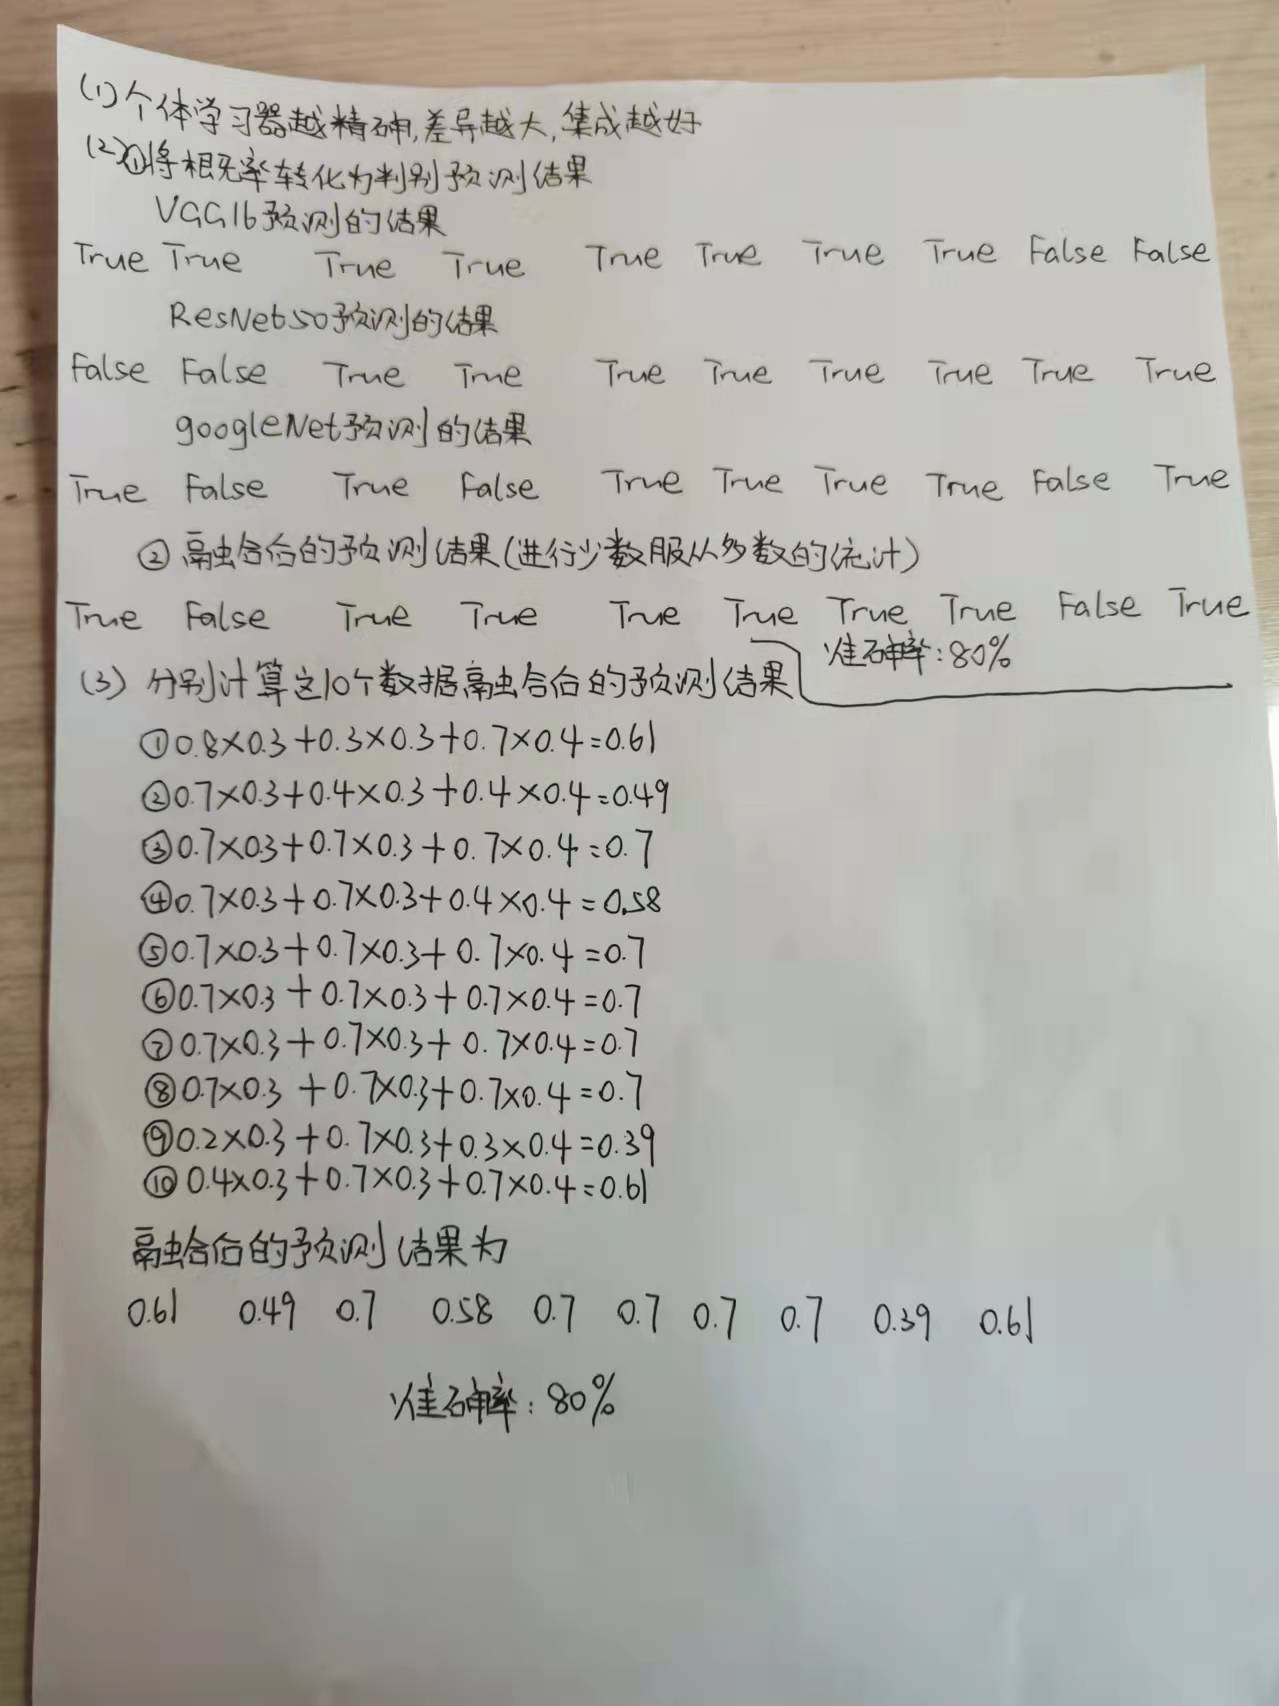 (1)个体学习器越精确,差异越大,集成越好
(2)①将概率转化为判别预测结果
VGG16预测的结果
True True True True True True True True False False
ResNet50预测的结果
False False True True True True True True True True
googleNet预测的结果
True False True False True True True True False True
②融合后的预测结果(进行少数服从多数的统计)
True False True True True True True True False True
准确率:80%
(3)分别计算这10个数据融合后的预测结果
①0.8×0.3+0.3×0.3+0.7×0.4=0.61
②0.7×0.3+0.4×0.3+0.4×0.4=0.49
③0.7×0.3+0.7×0.3+0.7×0.4=0.7
④0.7×0.3+0.7×0.3+0.4×0.4=0.58
⑤0.7×0.3+0.7×0.3+0.7×0.4=0.7
⑥0.7×0.3+0.7×0.3+0.7×0.4=0.7
⑦0.7×0.3+0.7×0.3+0.7×0.4=0.7
⑧0.7×0.3+0.7×0.3+0.7×0.4=0.7
⑨0.2×0.3+0.7×0.3+0.3×0.4=0.39
⑩0.4×0.3+0.7×0.3+0.7×0.4=0.61
融合后的预测结果为
0.61 0.49 0.7 0.58 0.7 0.7 0.7 0.7 0.39 0.61
准确率:80%